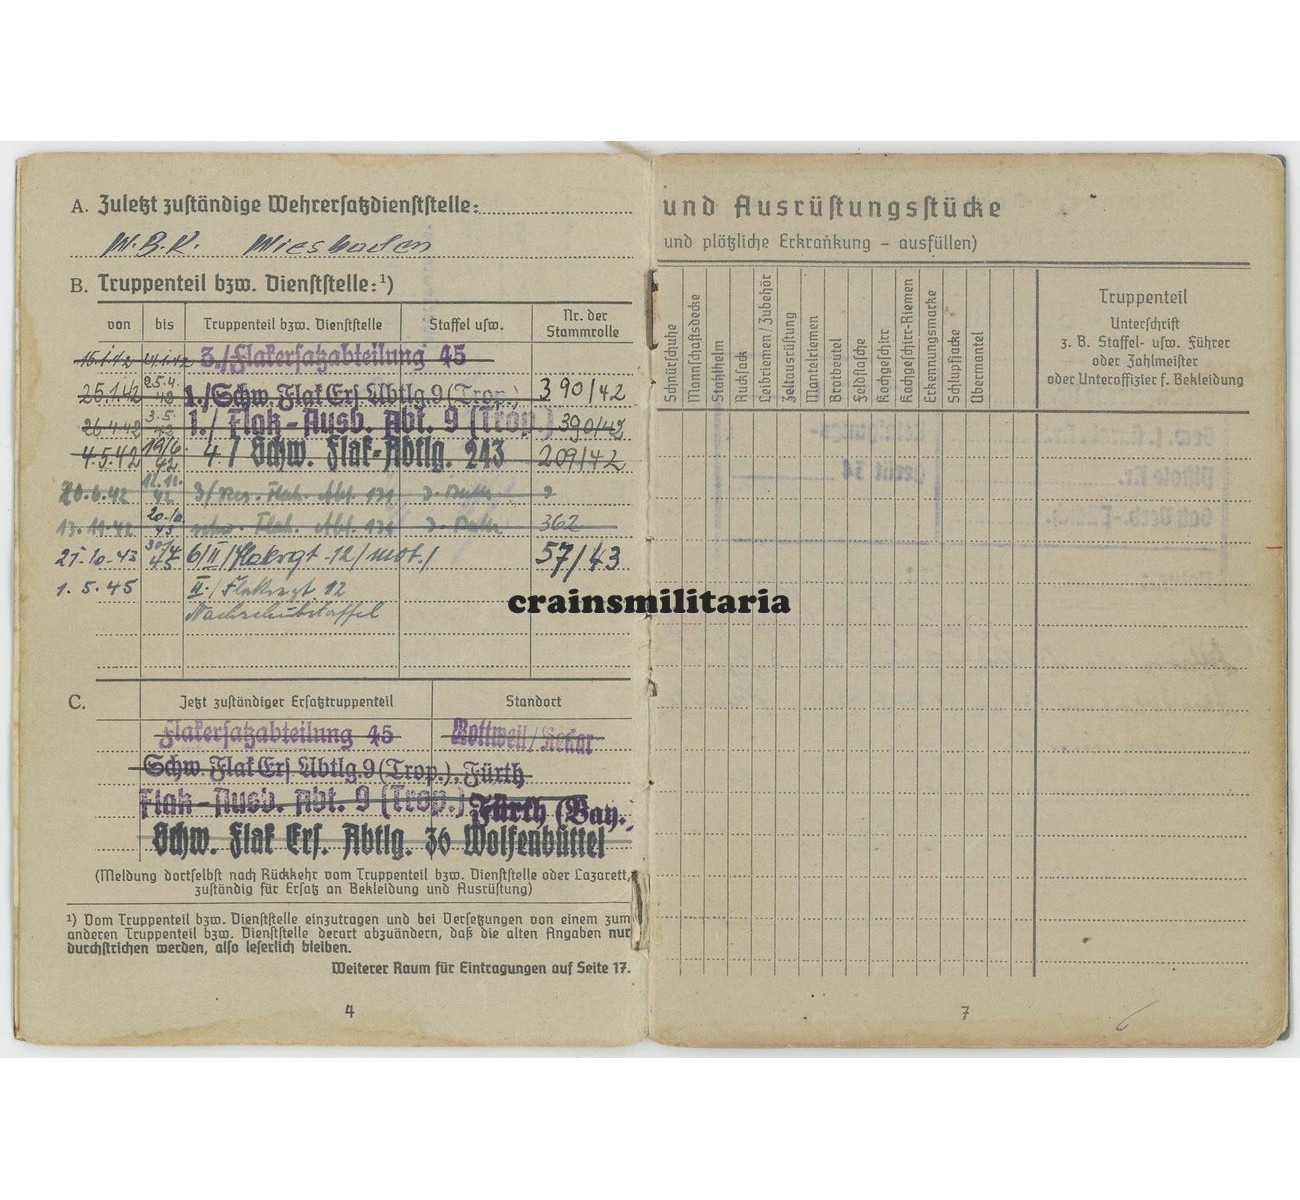 A. Zuletzt zuständige Wehrersatzdienststelle:
W.B.K. Wiesbaden
B. Truppenteil bzw. Dienststelle:¹)
von bis Truppenteil bzw. Dienststelle Staffel usw. Nr. der Stammrolle
15.1.42 3./Flakersatzabteilung 45
25.1.42 25.4.42 1./Schw. Flak Ers Abtlg. 9 (Trop.) 390/42
26.4.42 3.5.42 1./ Flak-Ausb. Abt. 9 (Trop.) 390/42
4.5.42 19/6.42 4/ Schw. Flak-Abtlg. 243 209/42
20.6.42 12.11.42 3/Res. Flak. Abt. 131
13.11.42 20.10.43 Flak. Abt. 131 362
21.10.43 30/4.45 6/II/Flakrgt. 12/mot./ 57/43
1.5.45 II./Flakrgt 12
Nachschubstaffel
C. Jetzt zuständiger Ersatztruppenteil Standort
Flakersatzabteilung 45 Rottweil/Neckar
Schw. Flak Ers Abtlg. 9 (Trop.), Fürth
Flak-Ausb. Abt. 9 (Trop.) Fürth (Bay.)
Schw. Flak Ers. Abtlg. 36 Wolfenbüttel
(Meldung dortselbst nach Rückkehr vom Truppenteil bzw. Dienststelle oder Lazarett,
zuständig für Ersatz an Bekleidung und Ausrüstung)
¹) Vom Truppenteil bzw. Dienststelle einzutragen und bei Versetzungen von einem zum
anderen Truppenteil bzw. Dienststelle derart abzuändern, daß die alten Angaben nur
durchstrichen werden, also leserlich bleiben.
Weiterer Raum für Eintragungen auf Seite 17.
4
und Ausrüstungsstücke
und plötzliche Erkrankung – ausfüllen)
Schnürschuhe
Mannschaftsdecke
Stahlhelm
Rucksack
Leibriemen/Zubehör
Zeltausrüstung
Mantelriemen
Brotbeutel
Feldflasche
Kochgeschirr
Kochgeschirr-Riemen
Erkennungsmarke
Schlupfjacke
Übermantel
Truppenteil
Unterschrift
z. B. Staffel- usw. Führer
oder Zahlmeister
oder Unteroffizier f. Bekleidung
7
crainsmilitaria